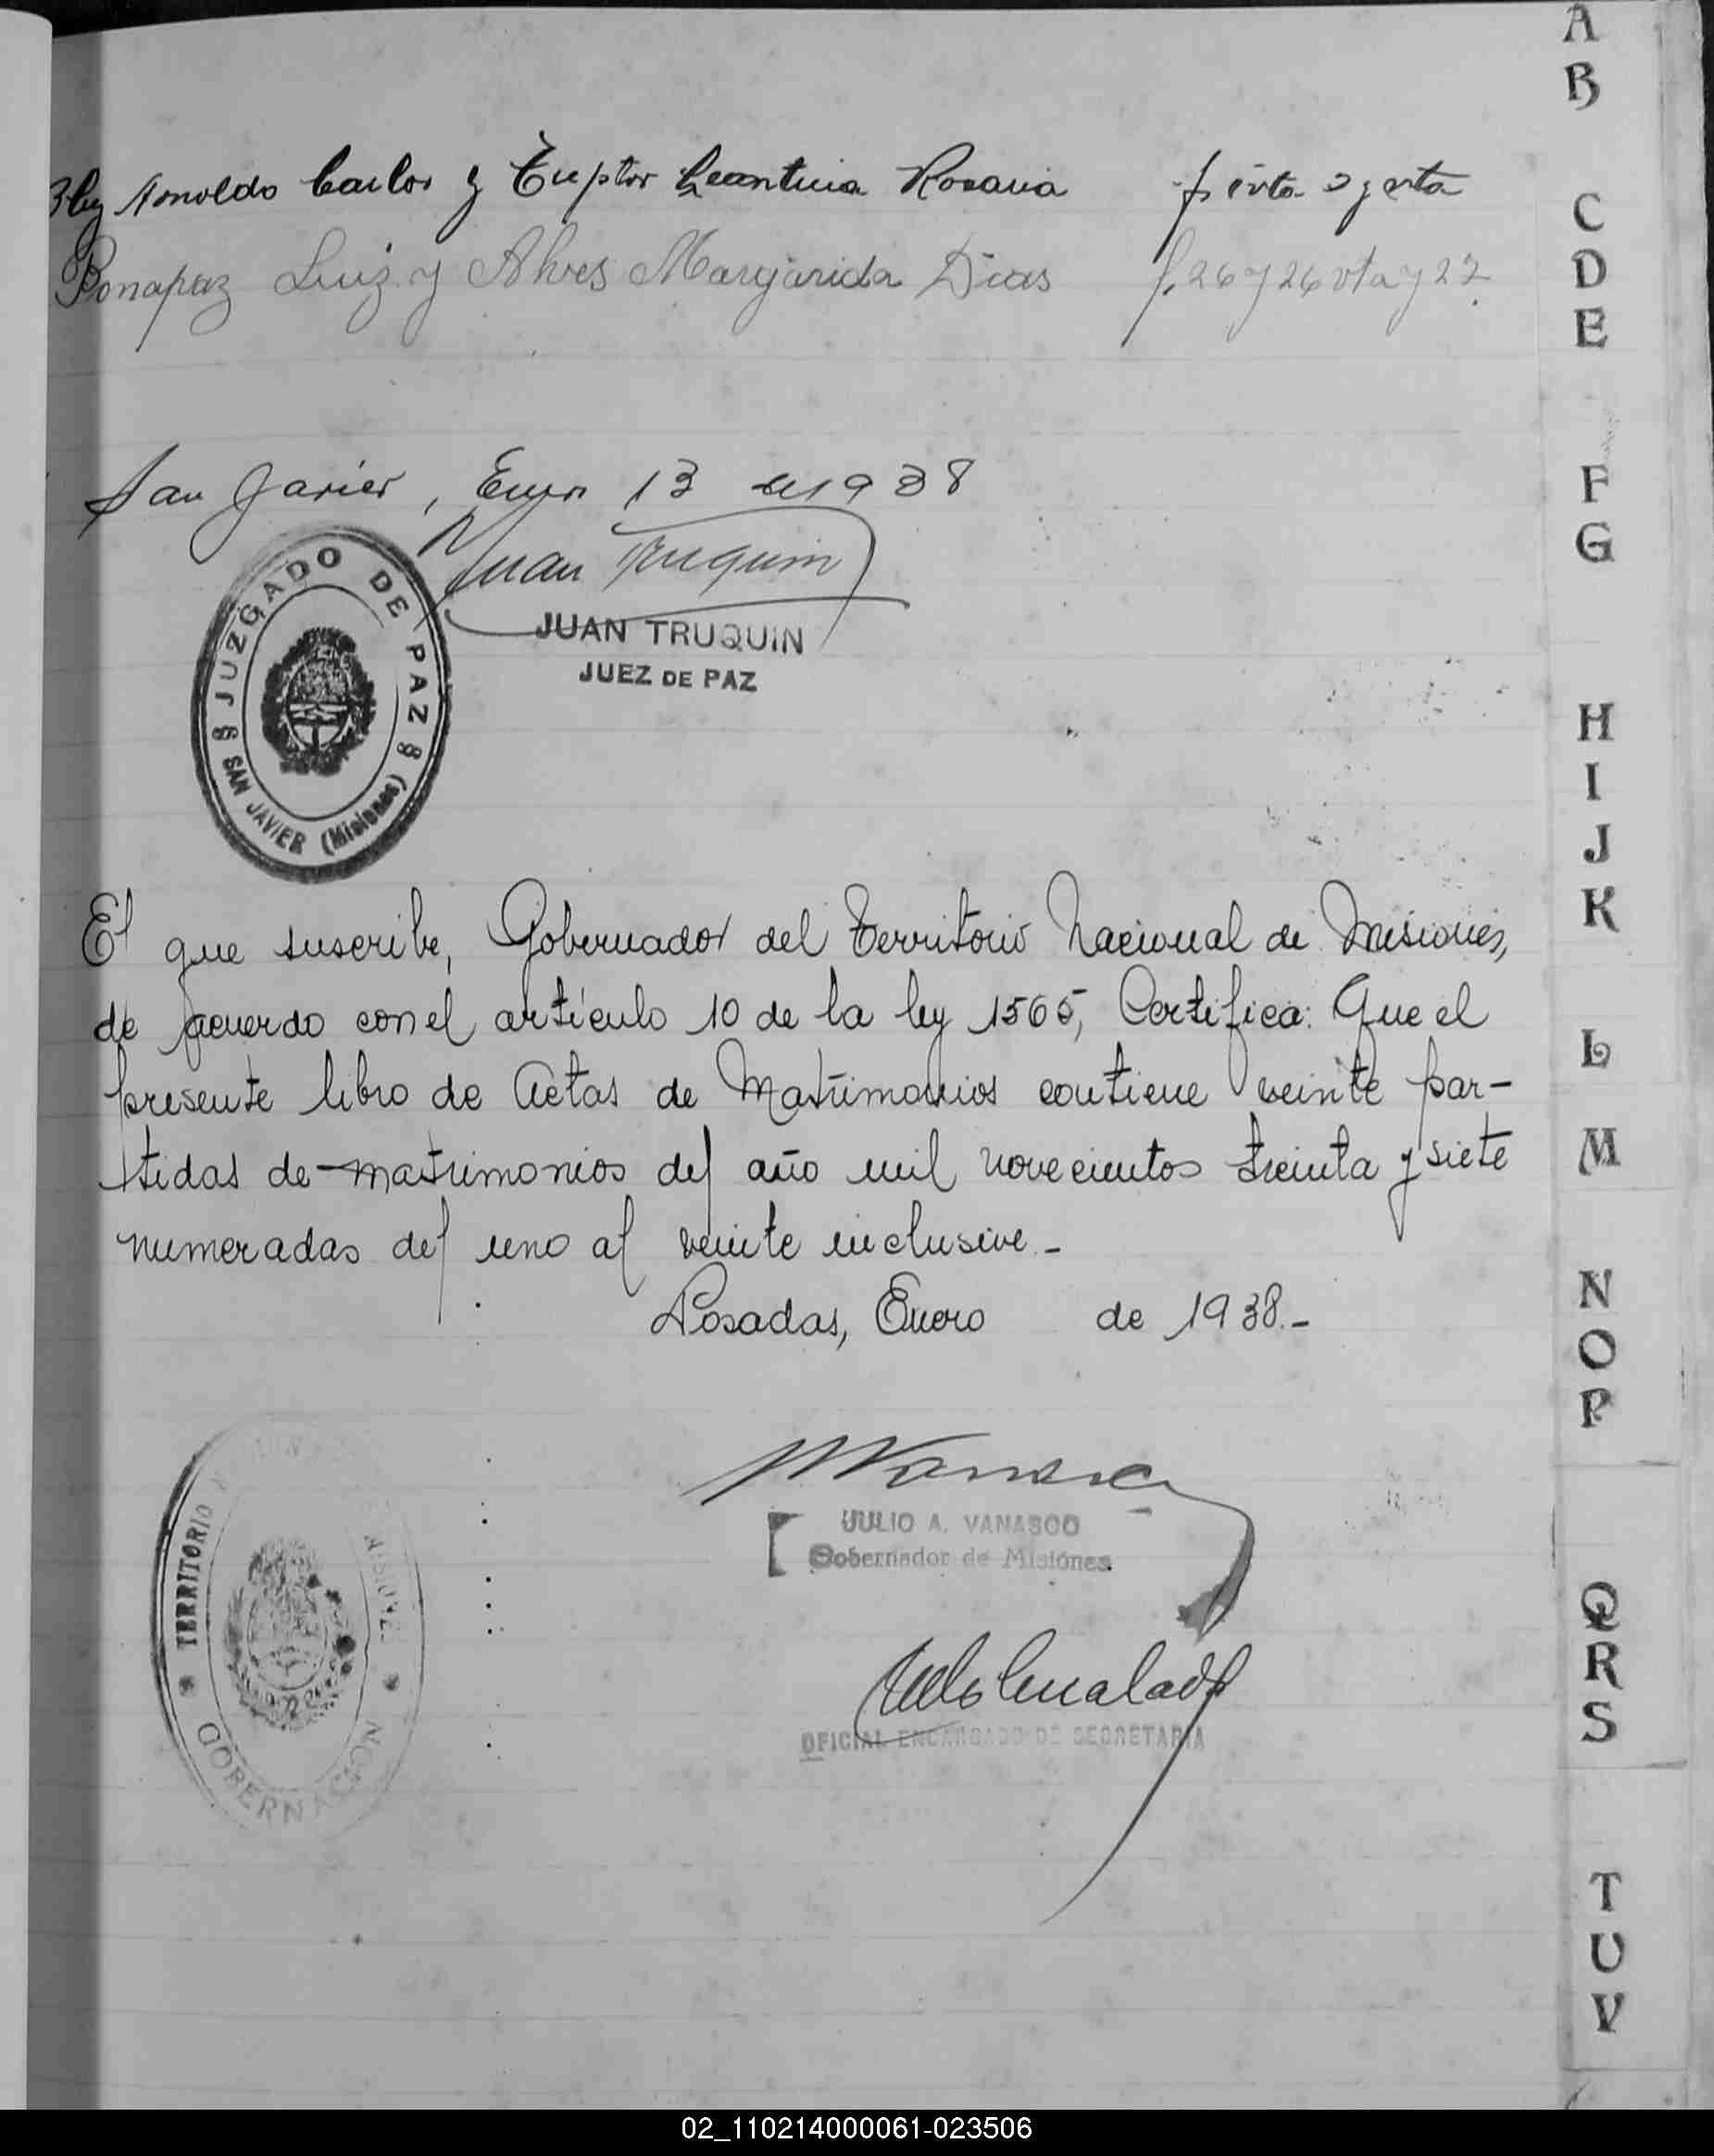 Arnoldo Carlos y Rosaria
Bonapaz Luiz y Alves Margarida Dias f. 26 y 26 vta y 27.
San Javier, Enero 13 de 1938
Juan Truquin
JUAN TRUQUIN
JUEZ DE PAZ
JUZGADO DE PAZ
SAN JAVIER (Misiones)
El que suscribe, Gobernador del Territorio Nacional de Misiones,
de acuerdo con el artículo 10 de la ley 1565, Certifica: Que el
presente libro de Actas de Matrimonios contiene veinte par-
tidas de matrimonios del año mil novecientos treinta y siete
numeradas del uno al veinte inclusive.-
Posadas, Enero de 1938.-
JULIO A. VANASCO
Gobernador de Misiones
TERRITORIO MISIONES
GOBERNACION
OFICIAL ENCARGADO DE SECRETARIA
A
B
C
D
E
F
G
H
I
J
K
L
M
N
O
P
Q
R
S
T
U
V
02_110214000061-023506